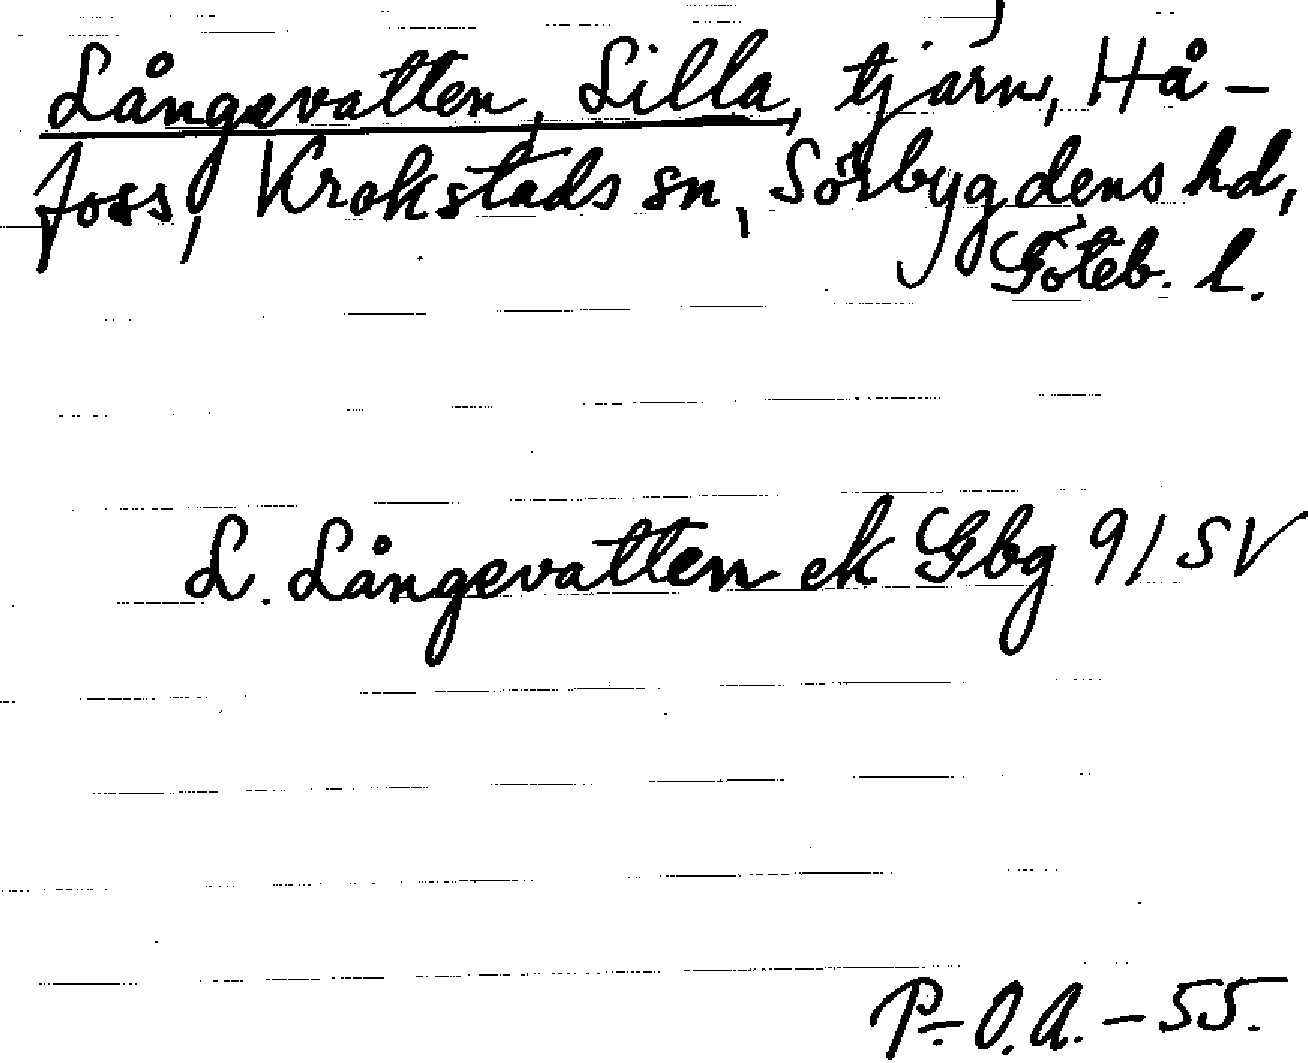 Långevatten, Lilla, tjärn, Hå-
foss, Krokstads sn, Sörbygdens hd,
Göteb. l.
L. Långevatten ek Gbg 91 SV
P.-O.A.-55.